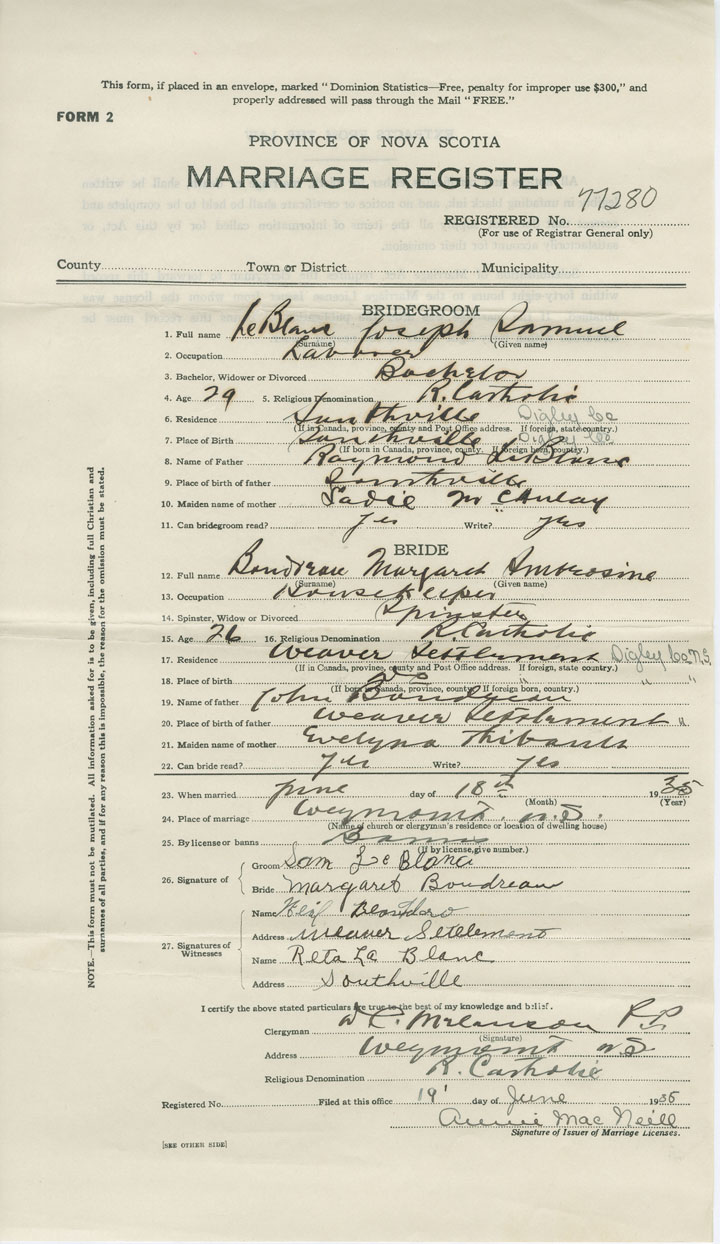 This form, if placed in an envelope, marked "Dominion Statistics—Free, penalty for improper use $300," and
properly addressed will pass through the Mail "FREE."
FORM 2
PROVINCE OF NOVA SCOTIA
MARRIAGE REGISTER
REGISTERED No. 77280
(For use of Registrar General only)
County Town or District Municipality
BRIDEGROOM
1. Full name LeBlanc Joseph Samuel
(Surname) (Given name)
2. Occupation Laborer
3. Bachelor, Widower or Divorced Bachelor
4. Age 29 5. Religious Denomination R. Catholic
6. Residence Southville Digby Co
(If in Canada, province, county and Post Office address. If foreign, state country.)
7. Place of Birth Southville Digby Co.
(If born in Canada, province, county. If foreign born, country.)
8. Name of Father Raymond LeBlanc
9. Place of birth of father Southville
10. Maiden name of mother Sadie McCaulay
11. Can bridegroom read? yes Write? yes
BRIDE
12. Full name Boudreau Margaret Ambrosine
(Surname) (Given name)
13. Occupation Housekeeper
14. Spinster, Widow or Divorced Spinster
15. Age 26 16. Religious Denomination R. Catholic
17. Residence Weaver Settlement Digby Co N.S.
(If in Canada, province, county and Post Office address. If foreign, state country.)
18. Place of birth Do " " "
(If born in Canada, province, county. If foreign born, country.)
19. Name of father John Boudreau
20. Place of birth of father Weaver Settlement "
21. Maiden name of mother Evelyna Thibault
22. Can bride read? yes Write? yes
23. When married june day of 18th 1935
(Month) (Year)
24. Place of marriage Weymouth n.S.
(Name of church or clergyman's residence or location of dwelling house)
25. By license or banns Banns
(If by license, give number.)
26. Signature of
Groom Sam Le Blanc
Bride Margaret Boudreau
27. Signatures of Witnesses
Name
Address Weaver Settlement
Name Reta La Blanc
Address Southville
I certify the above stated particulars are true to the best of my knowledge and belief.
Clergyman D. C. Melanson P.P.
(Signature)
Address Weymouth n.S
Religious Denomination R. Catholic
Registered No. Filed at this office 19' day of June 1935
Annie Mac Neill
Signature of Issuer of Marriage Licenses.
[SEE OTHER SIDE]
NOTE.—This form must not be mutilated. All information asked for is to be given, including full Christian and
surnames of all parties, and if for any reason this is impossible, the reason for the omission must be stated.